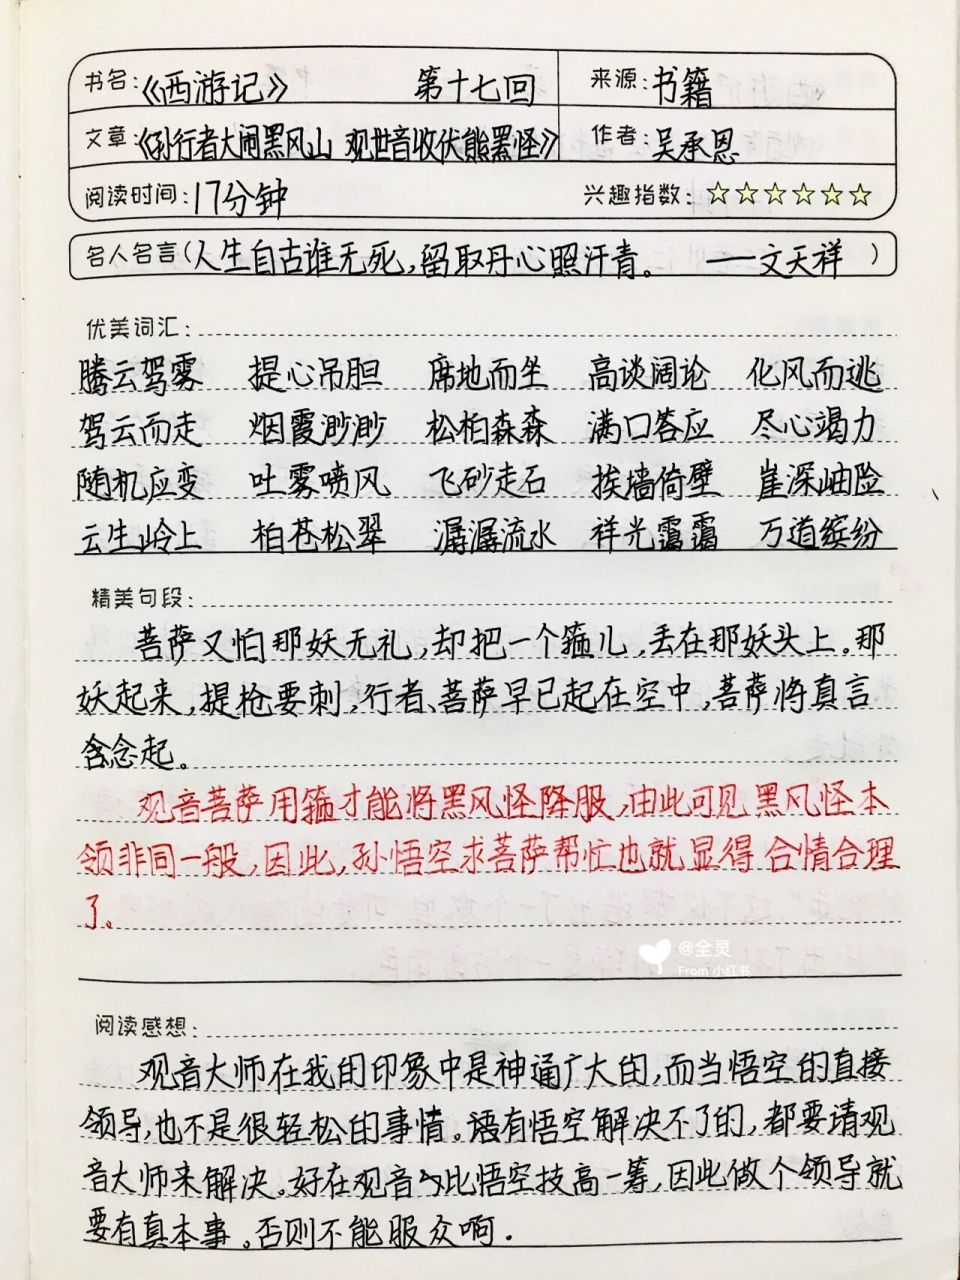 书名:《西游记》 第十七回 来源:书籍
文章:《孙行者大闹黑风山 观世音收伏熊黑怪》 作者:吴承恩
阅读时间:17分钟 兴趣指数:☆☆☆☆☆☆
名人名言(人生自古谁无死,留取丹心照汗青。 ——文天祥 )
优美词汇:
腾云驾雾 提心吊胆 席地而坐 高谈阔论 化风而逃
驾云而走 烟霞渺渺 松柏森森 满口答应 尽心竭力
随机应变 吐雾喷风 飞砂走石 挨墙倚壁 崖深岫险
云生岭上 柏苍松翠 潺潺流水 祥光霭霭 万道缤纷
精美句段:
菩萨又怕那妖无礼,却把一个箍儿,丢在那妖头上。那
妖起来,提枪要刺,行者、菩萨早已起在空中,菩萨将真言
含念起。
观音菩萨用箍才能将黑风怪降服,由此可见黑风怪本
领非同一般,因此,孙悟空求菩萨帮忙也就显得合情合理
了。
@全灵
From 小红书
阅读感想:
观音大师在我的印象中是神通广大的,而当悟空的直接
领导,也不是很轻松的事情。语有悟空解决不了的,都要请观
音大师来解决。好在观音比悟空技高一筹,因此做个领导就
要有真本事。否则不能服众啊.